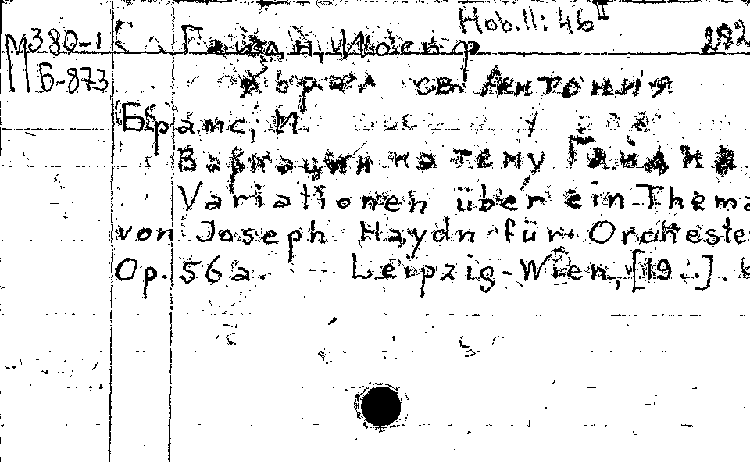 Hob.II: 46 II
М380-1 Гайдн, Йозеф
Б-873 Хорал св. Антония
Брамс, И.
Вариации на тему Гайдна.
Variationen über ein Thema
von Joseph Haydn für Orcheste
Op. 56a. Leipzig-Wien, [19..].